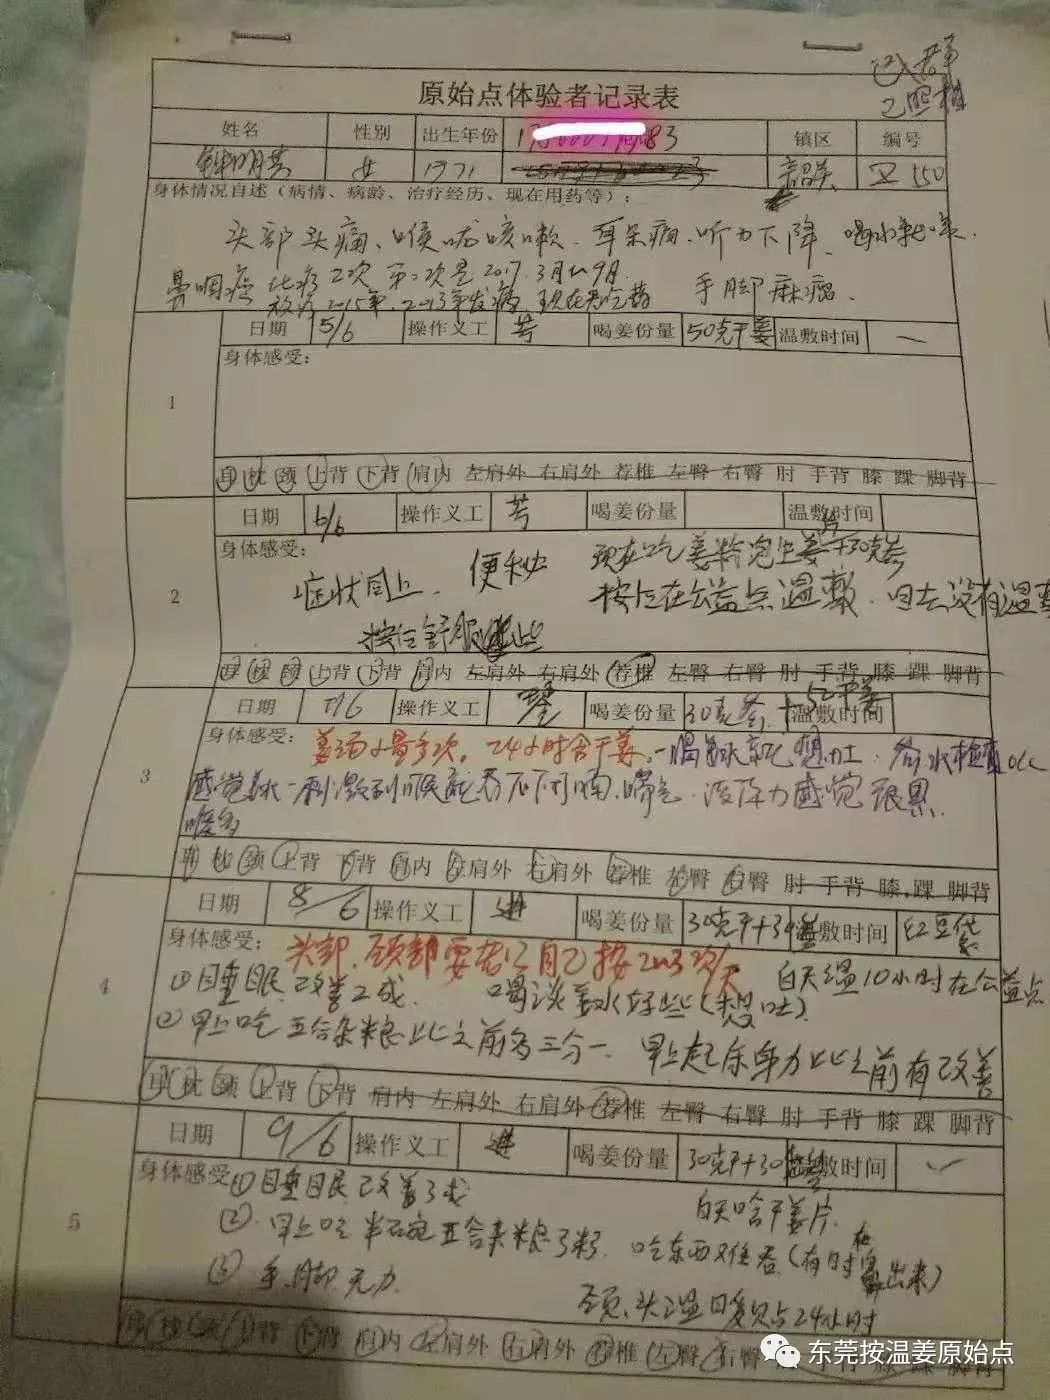 已入群
已照相
原始点体验者记录表
姓名 性别 出生年份 镇区 编号
女 1971 550
身体情况自述（病情、病龄、治疗经历、现在用药等）：
头部头痛、喉咙咳嗽、耳朵痛、听力下降、喝水
鼻咽癌 化疗2次 第二次是2017.3月和9月
放疗 2015年, 2013年发病, 现在 手脚麻
日期 5/6 操作义工 芳 喝姜份量 50克干姜 温敷时间 一
身体感受：
1
耳 枕 颈 上背 下背 肩内 左肩外 右肩外 荐椎 左臀 右臀 肘 手背 膝 踝 脚背
日期 6/6 操作义工 芳 喝姜份量 温敷时间
身体感受：
2
症状同上. 便秘 现在吃姜粉泡生姜+30克参
按后在公益点温敷.回去没有温敷
按后舒服些
耳 枕 颈 上背 下背 肩内 左肩外 右肩外 荐椎 左臀 右臀 肘 手背 膝 踝 脚背
日期 7/6 操作义工 喝姜份量 30克参 温敷时间
身体感受：姜汤少量多次。24小时含干姜。一喝姜水就想吐.
3
感觉姜水一刺激到喉咙吞不下 没体力感觉很累
耳 枕 颈 上背 下背 肩内 左肩外 右肩外 荐椎 左臀 右臀 肘 手背 膝 踝 脚背
日期 8/6 操作义工 进 喝姜份量 30克干+30 温敷时间 红豆袋
身体感受：头部.颈部要否己自己按2至3次/天
4
①目重眠改善2成. 喝淡姜水好些(想吐). 白天温10小时在公益点
②早上吃五合杂粮比之前多三分一. 早上起床体力比之前有改善
耳 枕 颈 上背 下背 肩内 左肩外 右肩外 荐椎 左臀 右臀 肘 手背 膝 踝 脚背
日期 9/6 操作义工 进 喝姜份量 30克干+30 温敷时间
身体感受：①目重目民改善3成 白天含干姜片.
5
②.早上吃半石碗五合杂粮子粥. 吃东西难吞(有时在鼻出来)
③手.脚.无力. 颈、头温 24小时
耳 枕 颈 上背 下背 肩内 左肩外 右肩外 荐椎 左臀 右臀 肘 手背 膝 踝 脚背
东莞按温姜原始点